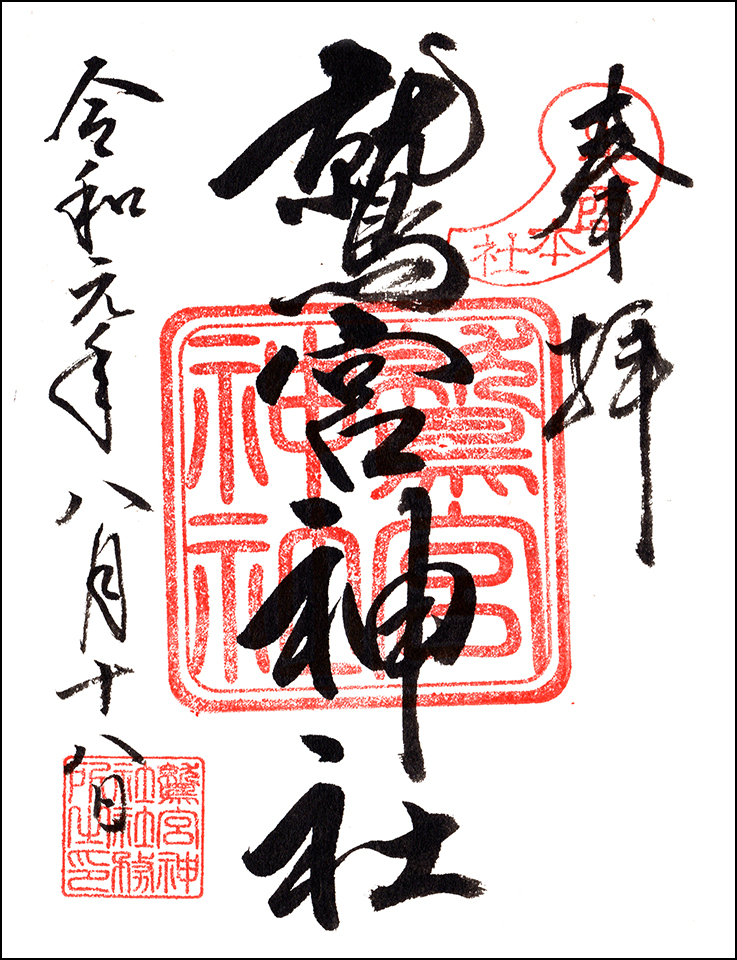 奉拝
本社
鷲宮神社
鷲宮神社
令和元年八月十八日
鷲宮神
社社務
所之印